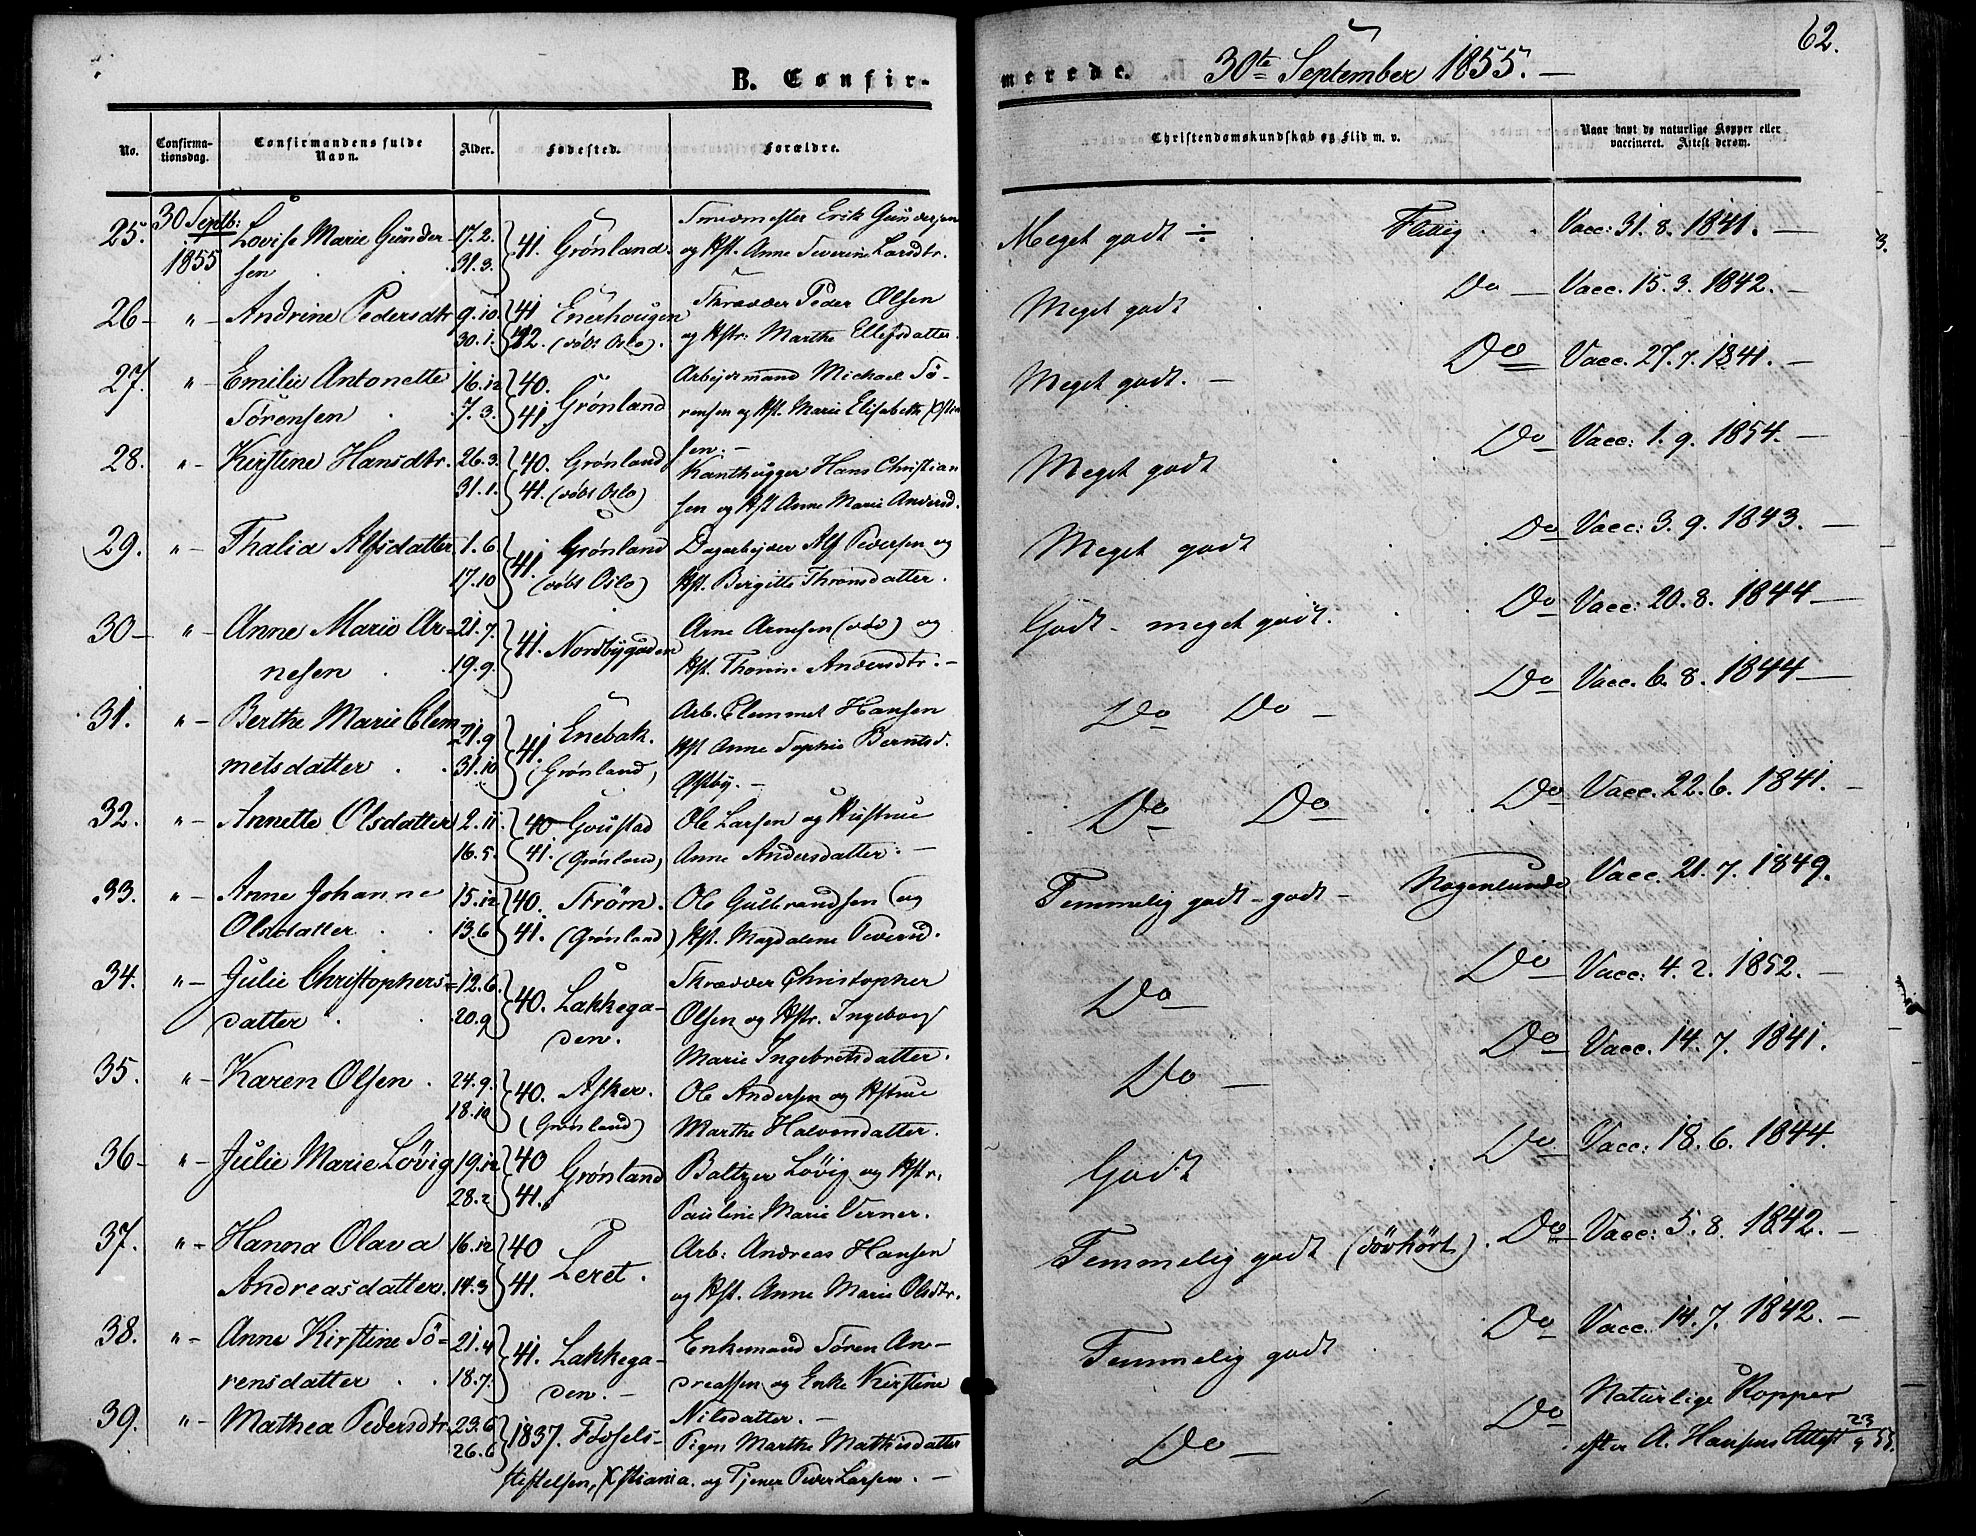 62.
B. Confir-
merede.
30te September 1855. —
No.
Confirma-
tionsdag.
Confirmandens fulde
Navn.
Alder.
Fødested.
Forældre.
Christendomskundskab og Flid m. v.
Naar havt de naturlige Kopper eller
vaccineret. Attest derom.
25. 30 Septb: 1855 Lovise Marie Gunder- 17.2. 31.3. 41. Grønland. Smedmester Erik Gundersen
sen og Hst. Anne Severine Larsdtr.
Meget godt ÷ Flittig Vacc: 31.8.1841. —
26 — " — Andrine Pedersdtr 9.10. 41 Enerhougen Skrædder Peder Olsen
30.1. 42. (døbt Oslo). og Hstr: Marthe Ellefsdatter.
Meget godt Do — Vacc. 15.3.1842. —
27. " — Emilie Antonette 16.12 40. Grønland Arbejdsmand Michael Sö-
Sörensen 7.3. 41. rensen og Hst. Marie Elisabeth Xstian
sen: —
Meget godt. — Do Vacc. 27.7.1841. —
28. " — Kirstine Hansdtr. 26.3. 40. Grønland Kanthugger Hans Christian
31.1. 41. (døbt Oslo) sen og Hst Anne Marie Andersd.
Meget godt Do Vacc: 1.9.1854. —
29. " — Thalia Alfsdatter 1.6 41. Grønland Dagarbejder Alf Pedersen og
17.10 (døbt Oslo) Hst. Bergitte Thronsdatter.
Meget godt Do Vacc: 3.9.1843. —
30 — " — Anne Marie Ar- 21.7. 41. Nordbygaden Arne Arnesen (død) og
nesen 19.9. Hst. Thorine Andersdtr: —
Godt - meget godt. Do Vacc: 20.8.1844 —
31. " — Berthe Marie Clem- 21.9 41. Enebak. Arb. Clemmet Hansen
metsdatter 31.10 (Grønland) Hst Anne Sophie Berntsd.
Østby. —
Do Do — Do Vacc. 6.8.1844 —
32. " — Annette Olsdatter 2.11. 40 Goustad Ole Larsen og Hustrue
16.5. 41. (Grønland) Anne Andersdatter: —
Do Do Do Vacc. 22.6.1841. —
33. " — Anne Johanne 15.12 40. Strøm. Ole Gulbrandsen (og
Olsdatter 13.6 41. (Grønland) Hst. Magdalene Pedersd.
Temmelig godt - godt — Nogenlunde Vacc. 21.7.1849.
34. " — Julie Christophers= 12.6. 40. Lakkega- Skrædder Christopher
datter 20.9 den. Olsen og Hstr. Ingeborg
Marie Ingebretsdatter.
Do — Do Vacc: 4.2.1852. —
35. " — Karen Olsen. 24.9. 40. Asker. Ole Andersen og Hstrue
18.10 (Grønland) Marthe Halvorsdatter.
Do — Do Vacc. 14.7.1841.
36 — " — Julie Marie Lövig 19.12. 40 Grønland Baltzer Lövig og Hstr.
28.2 41. Pauline Marie Verner.
Godt Do Vacc: 18.6.1844.
37. " — Hanna Olava 16.12 40 Leret. Arb: Andreas Hansen
Andreasdatter. 14.3 41. og Hst. Anne Marie Olsdtr.
Temmelig godt (tövhört). Do Vacc: 5.8.1842. —
38. " — Anne Kirstine Sö- 21.4 41. Lakkega- Enkemand Sören An-
rensdatter 18.7. den. — dreassen og Enke Kirstine
Nilsdatter. —
Temmelig godt Do Vacc. 14.7.1842. —
39. " — Mathea Pedersdtr. 23.6 1837. Födsels- Pigen Marthe Mathisdatter
26.6 stiftelsen, Xstiania. og Tjener Peder Larsen. —
Do — Do Naturlige Kopper
efter A. Hansens Attest 23/9 55.